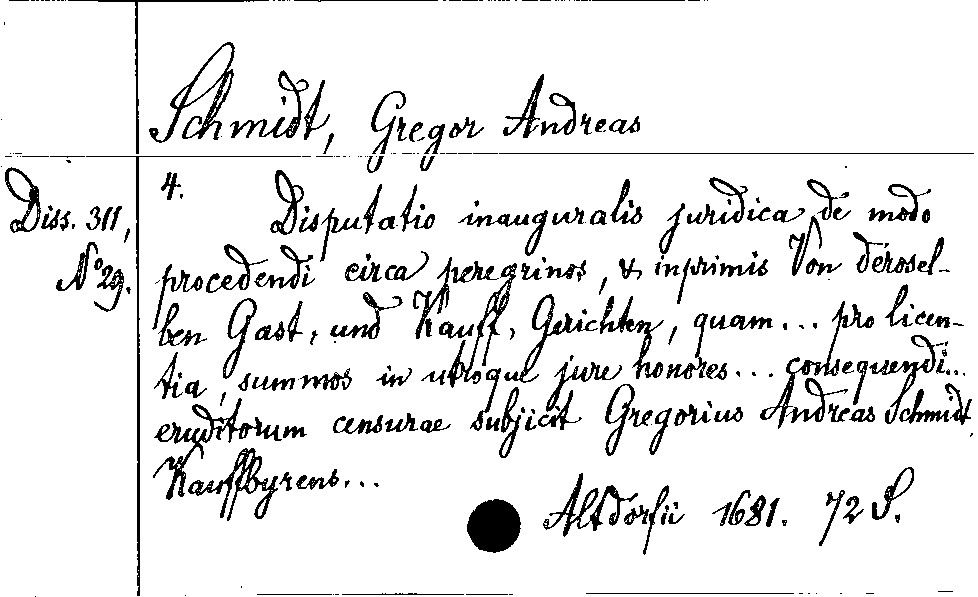 Schmidt, Gregor Andreas
Diss. 311,
No 29.
4.
Disputatio inauguralis juridica de modo
procedendi circa peregrinos, & inprimis Von derosel-
ben Gast, und Kauff, Gerichten, quam... pro licen-
tia, summos in utroque jure honores... consequendi...
eruditorum censurae subjicit Gregorius Andreas Schmidt,
Kauffbyrens...
Altdorfii 1681. 72 S.